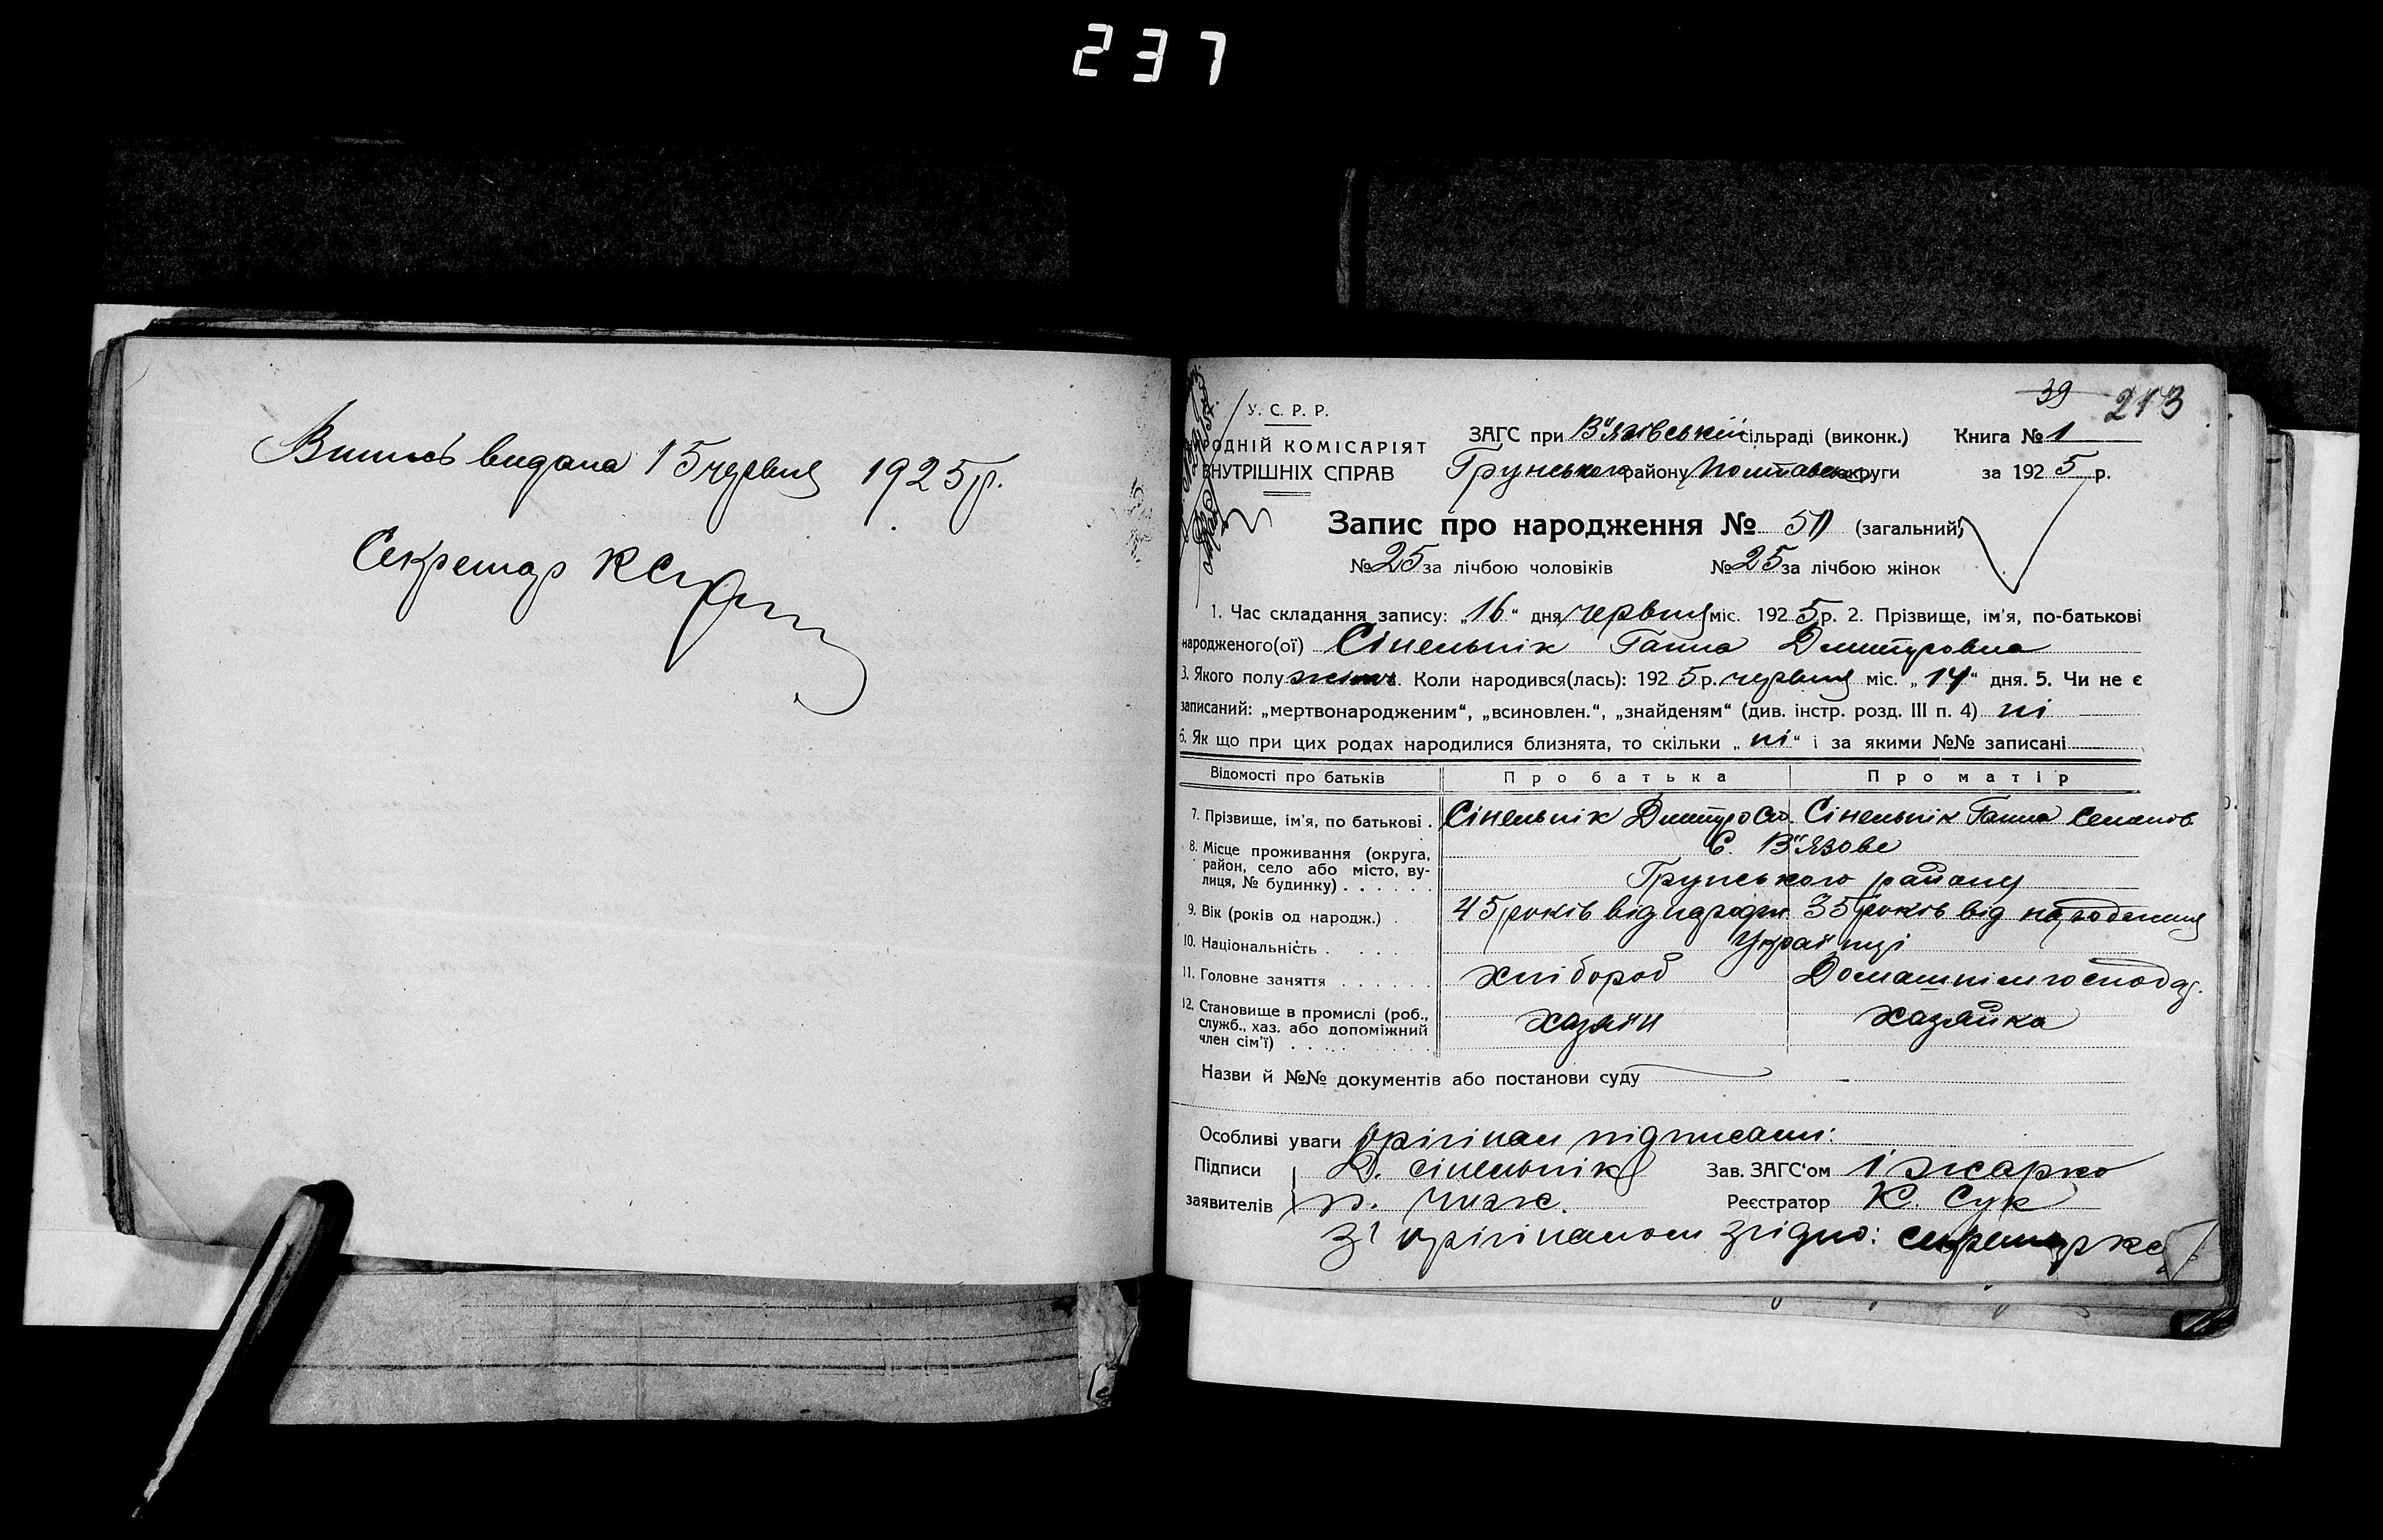 237
Випись видана 15 червня 1925 р.
Секретар К Сук
39 213
У. С. Р. Р.
РОДНІЙ КОМІСАРІЯТ
ВНУТРІШНІХ СПРАВ
ЗАГС при В'язівській сільраді (виконк.) Книга № 1
Грунського району Полтавськ округи за 1925 р.
Запис про народження № 50 (загальний)
№ 25 за лічбою чоловіків № 25 за лічбою жінок
1. Час складання запису: „16“ дня червня міс. 1925 р. 2. Прізвище, ім'я, по-батькові
народженого(ої) Сінельнік Ганна Дмитровна
3. Якого полу жіноч. Коли народився(лась): 1925 р. червня міс. „14“ дня. 5. Чи не є
записаний: „мертвонародженим“, „всиновлен.“, „знайденям“ (див. інстр. розд. III п. 4) ні
6. Як що при цих родах народилися близнята, то скільки „ні“ і за якими №№ записані
Відомості про батьків Про батька Про матір
7. Прізвище, ім'я, по батькові . Сінельнік Дмитро Сінельнік Ганна Семенов.
8. Місце проживання (округа, район, село або місто, вулиця, № будинку) . . . . . . С. В'язове
Грунського району
9. Вік (років од народж.) . 45 років від народж 35 років від народження
10. Національність . . . . Українці
11. Головне заняття . . . . . . Хлібороб Домашнім господар.
12. Становище в промислі (роб., служб., хаз. або допоміжний член сім'ї) . . . . . хазяїн хазяйка
Назви й №№ документів або постанови суду
Особливі уваги Орігінал підписали:
Підписи Д. Сінельнік Зав. ЗАГС'ом І Жарко
заявителів П. Чиж. Реєстратор К. Сук
Зі орігіналом згідно: секретар КС